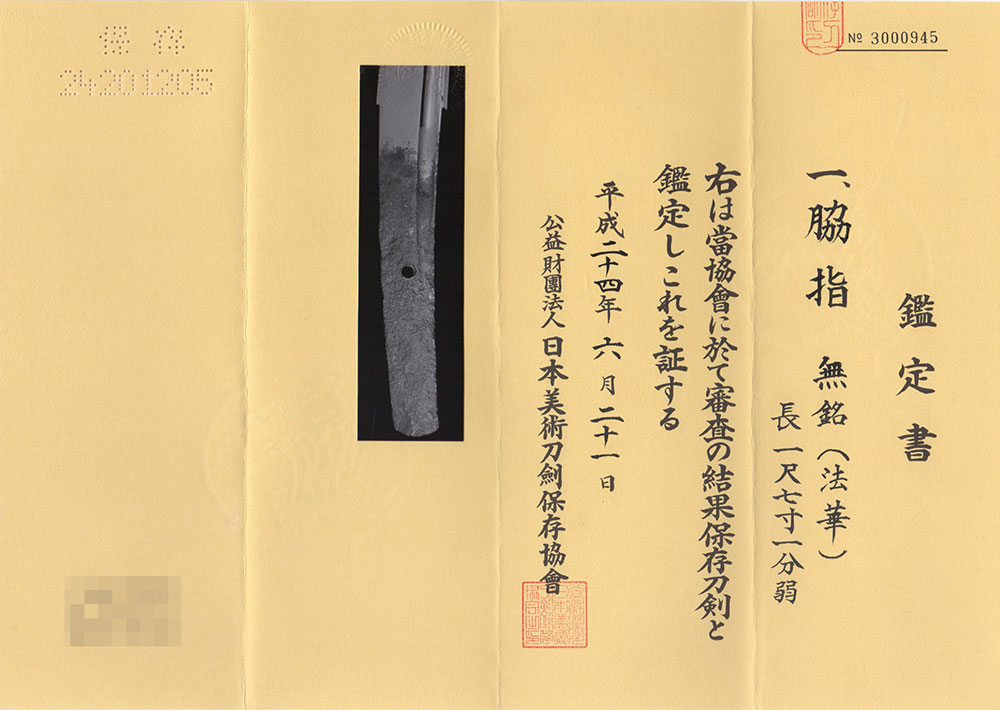 № 3000945
鑑定書
一、脇指 無銘（法華）
長 一尺七寸一分弱
右は當協會に於て審査の結果保存刀剣と
鑑定しこれを証する
平成二十四年 六月二十一日
公益財團法人 日本美術刀劍保存協會
保存
24201205